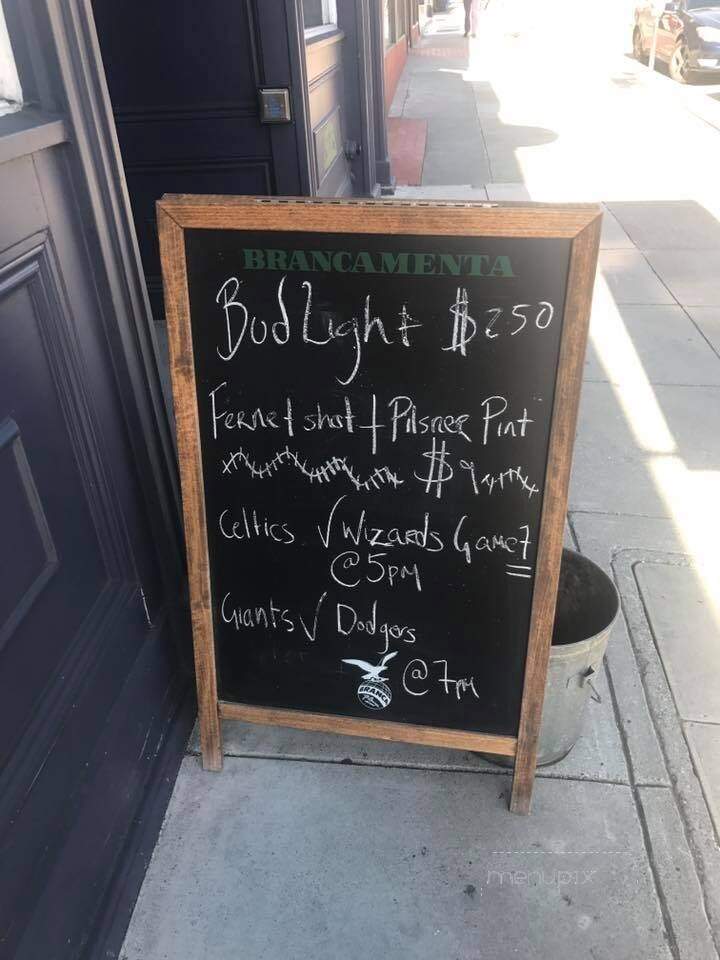 BRANCAMENTA
Bud Light $250
Fernet shot + Pilsner Pint
$9
Celtics V Wizards Game 7
@5pm
Giants V Dodgers
@7pm
BRANCA
menupix